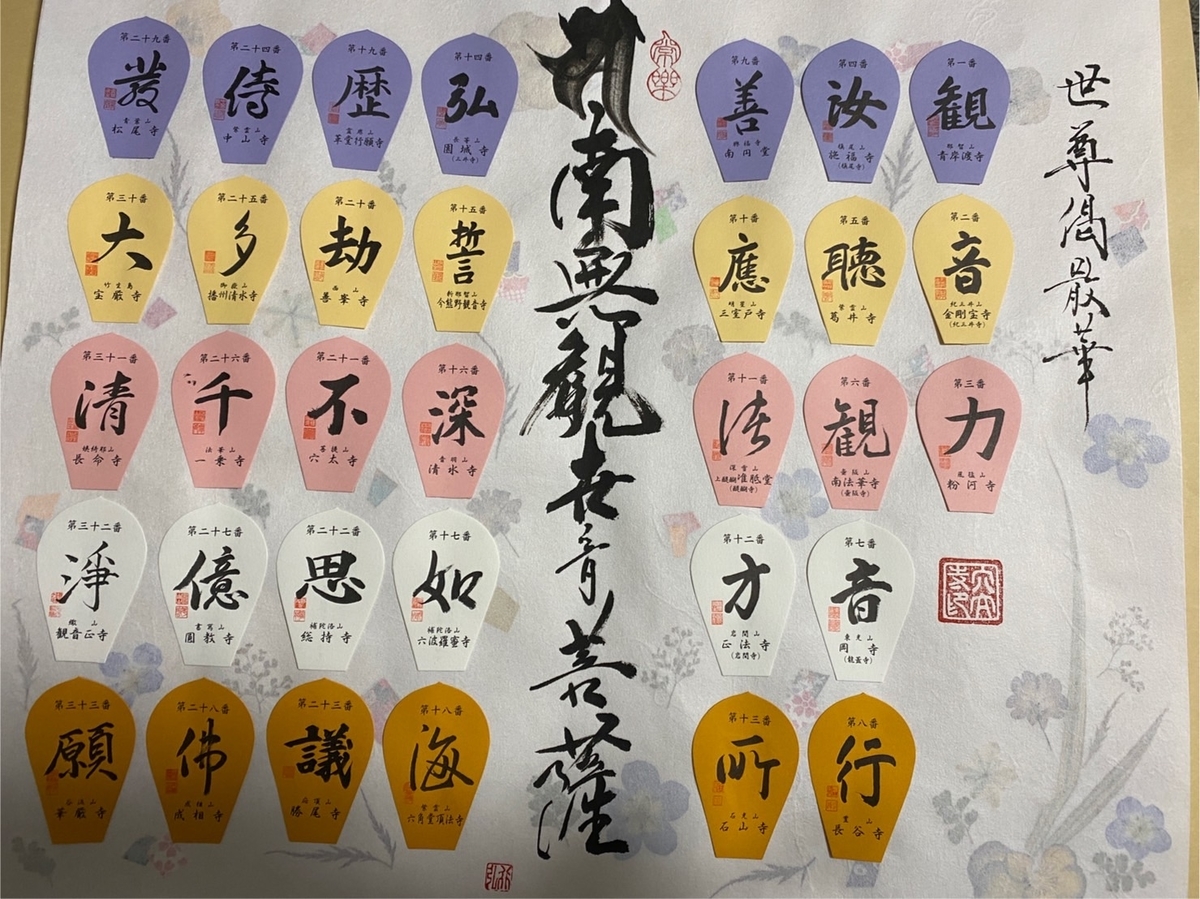 世尊偈散華
第一番
観
那智山
青岸渡寺
第二番
音
紀三井山
金剛宝寺
(紀三井寺)
第三番
力
風猛山
粉河寺
第四番
汝
槇尾山
施福寺
(槇尾寺)
第五番
聽
紫雲山
葛井寺
第六番
観
壷阪山
南法華寺
(壷阪寺)
第七番
音
東光山
岡寺
(龍蓋寺)
第八番
行
豊山
長谷寺
第九番
善
興福寺
南円堂
第十番
應
明星山
三室戸寺
第十一番
諸
深雪山
上醍醐准胝堂
(醍醐寺)
第十二番
方
岩間山
正法寺
(岩間寺)
第十三番
所
石光山
石山寺
常樂
南無觀世音菩薩
第十四番
弘
長等山
園城寺
(三井寺)
第十五番
誓
新那智山
今熊野観音寺
第十六番
深
音羽山
清水寺
第十七番
如
補陀洛山
六波羅蜜寺
第十八番
海
紫雲山
六角堂頂法寺
第十九番
歴
霊麀山
革堂行願寺
第二十番
劫
西山
善峯寺
第二十一番
不
菩提山
穴太寺
第二十二番
思
補陀洛山
総持寺
第二十三番
議
応頂山
勝尾寺
第二十四番
侍
紫雲山
中山寺
第二十五番
多
御嶽山
播州清水寺
第二十六番
千
法華山
一乗寺
第二十七番
億
書寫山
圓教寺
第二十八番
佛
成相山
成相寺
第二十九番
發
青葉山
松尾寺
第三十番
大
竹生島
宝厳寺
第三十一番
清
姨綺耶山
長命寺
第三十二番
淨
繖山
観音正寺
第三十三番
願
谷汲山
華厳寺